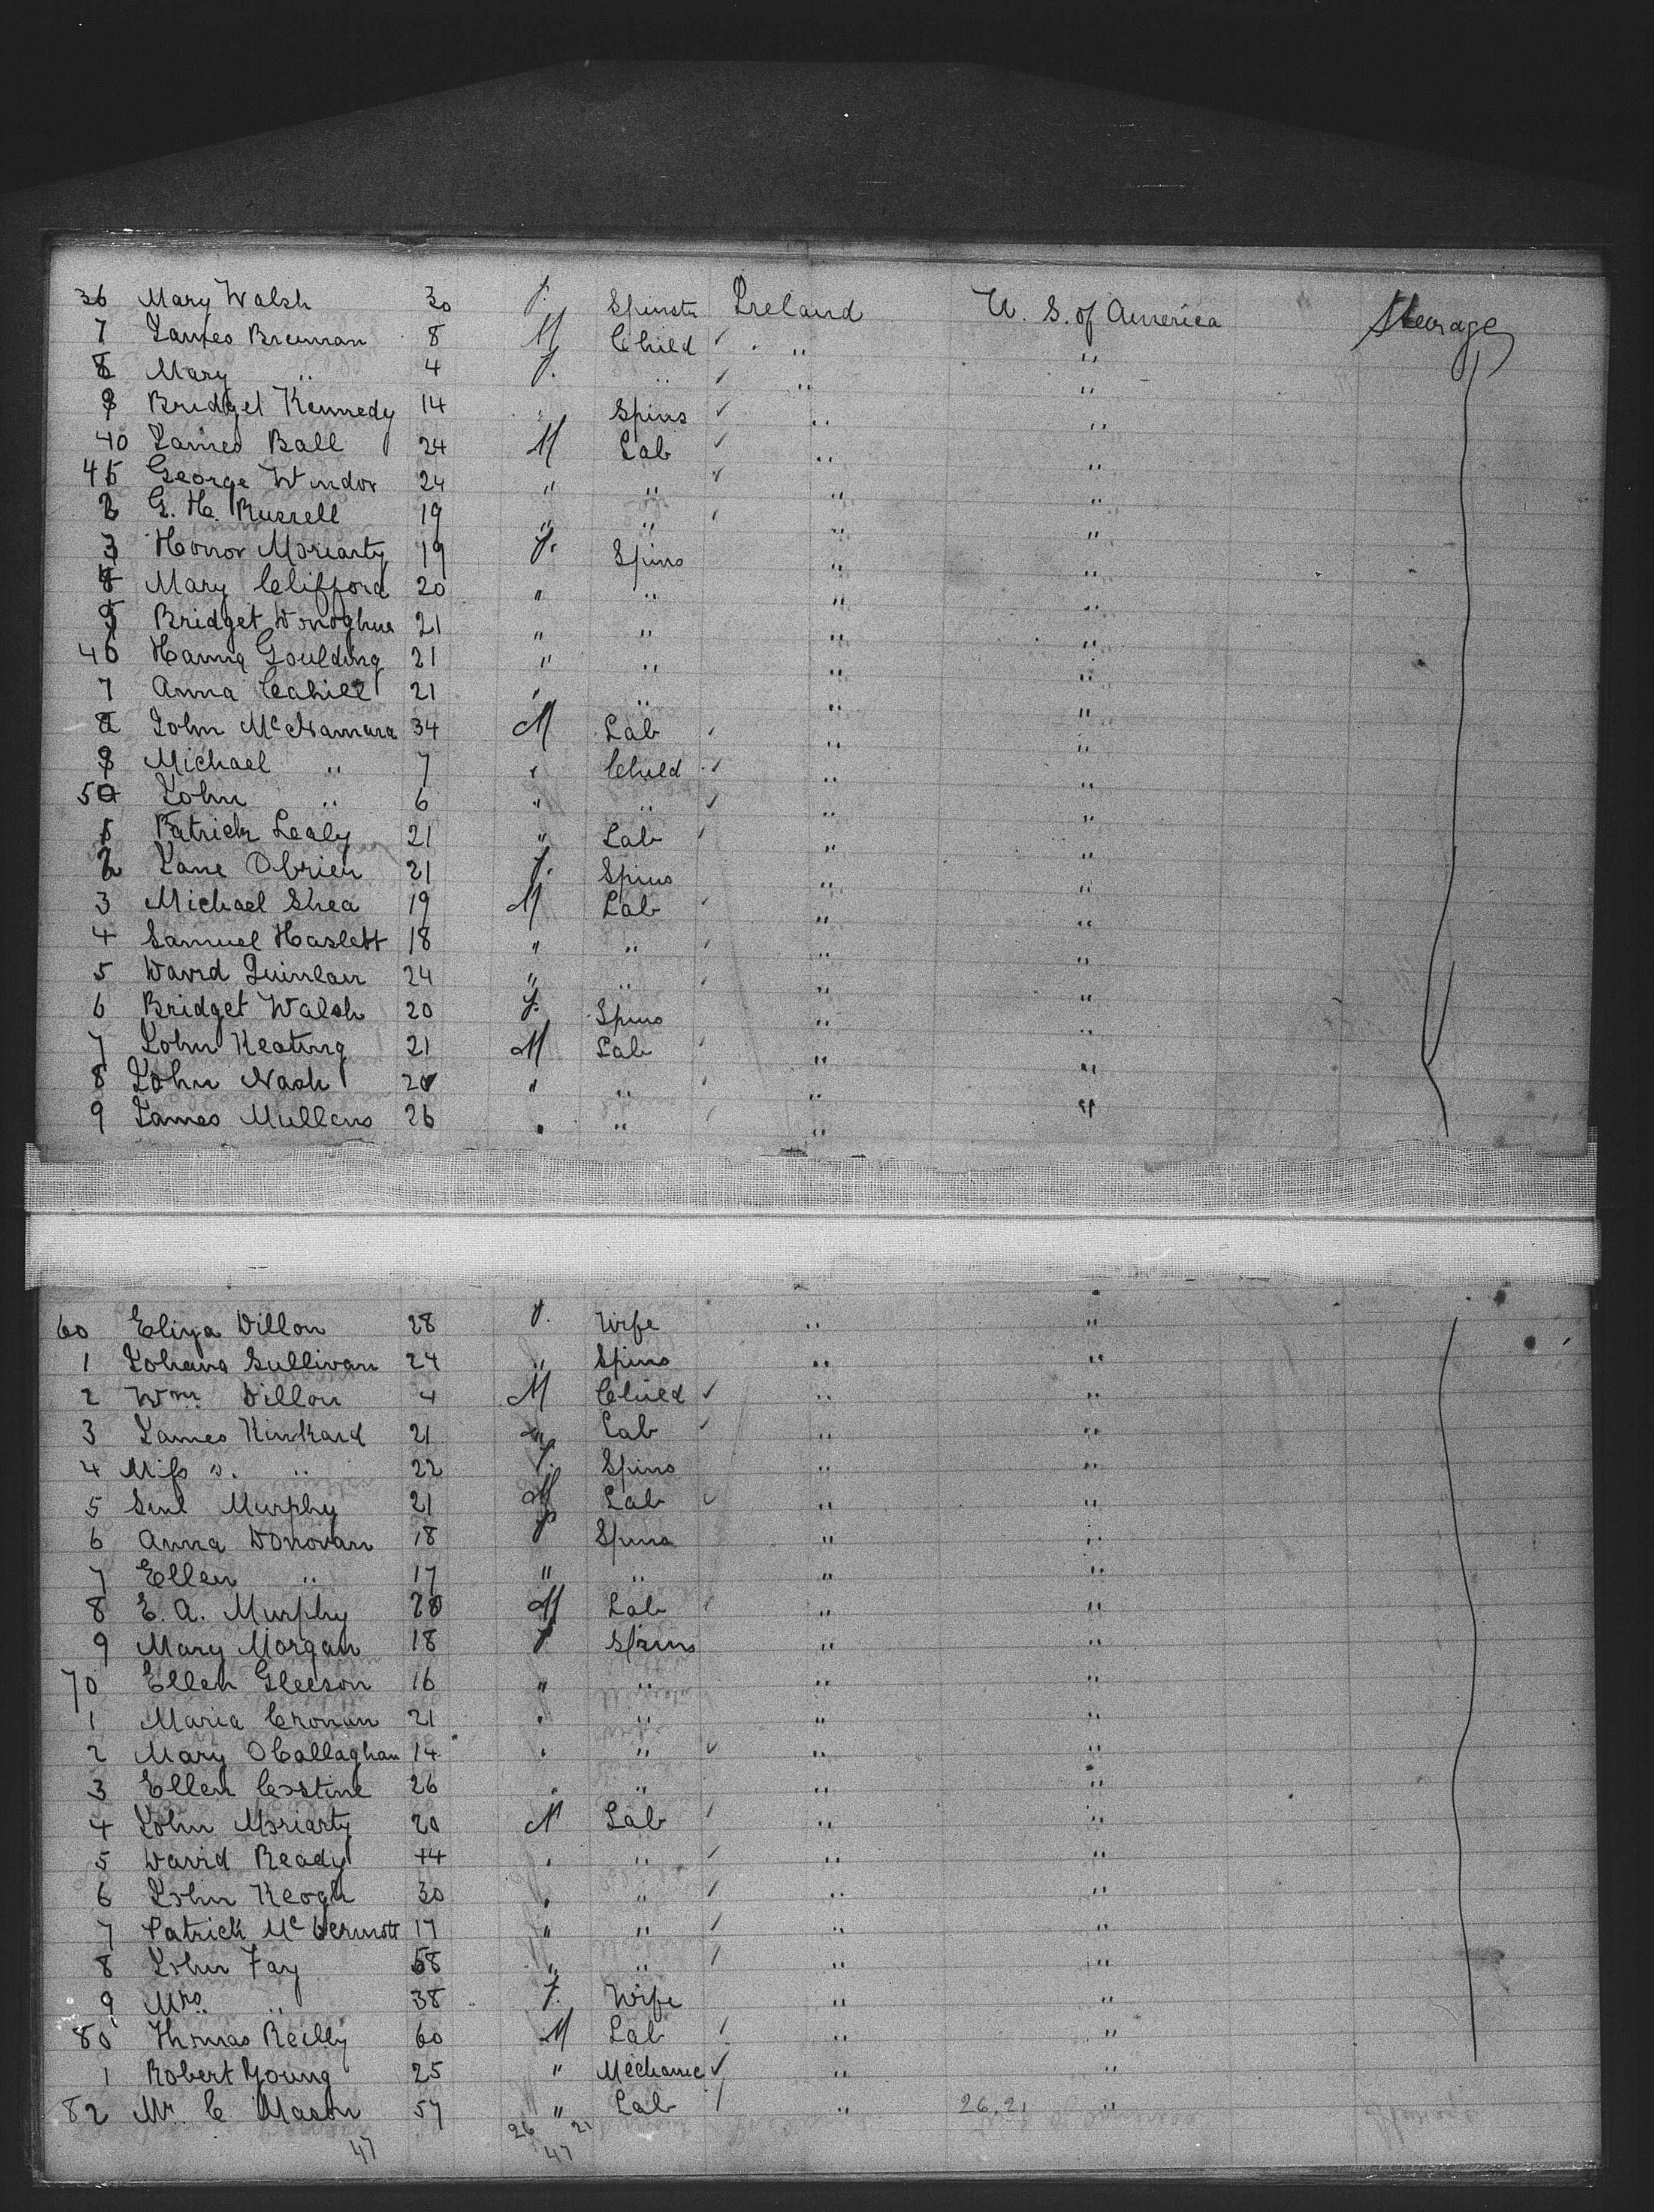 36 Mary Walsh 30 f. Spinstr Ireland U. S. of America Steerage
7 James Brennan 8 M Child ✓ " "
8 Mary " 4 f. " ✓ " "
9 Bridget Kennedy 14 " Spins ✓ " "
40 James Ball 24 M Lab ✓ " "
George Windor 24 " " ✓ " "
2 G. H. Russell 19 " " " "
3 Honor Moriarty 19 f. Spins " "
4 Mary Clifford 20 " " " "
5 Bridget Donoghue 21 " " " "
46 Hanna Goulding 21 " " " "
7 Anna Cahill 21 " " " "
8 John McNamara 34 M Lab " "
9 Michael " 7 " Child ✓ " "
50 John " 6 " " ✓ " "
Patrick Lealy 21 " Lab " "
2 Jane Obrien 21 f. Spins " "
3 Michael Shea 19 M Lab " "
4 Samuel Haslett 18 " " " "
5 David Quinlan 24 " " " "
6 Bridget Walsh 20 f. Spins " "
7 John Keating 21 M Lab " "
8 John Nash " " " "
9 James Mullens 26 " " " "
60 Eliza Dillon 28 f. Wife " "
1 Johana Sullivan 24 " Spins " "
2 Wm Dillon 4 M Child ✓ " "
3 James Kinkard 21 " Lab ✓ " "
4 Miss " 22 f. Spins " "
5 Murphy 21 M Lab ✓ " "
6 Anna Donovan 18 f Spins " "
7 Ellen " 17 " " " "
8 E. A. Murphy 20 M Lab " "
9 Mary Morgan 18 f Spins " "
70 Ellen Gleeson 16 " " " "
1 Maria Cronin 21 " " " "
2 Mary OCallaghan 14 " " ✓ " "
3 Ellen Costine 26 " " " "
4 John Moriarty 20 M Lab " "
5 David Ready 44 " " ✓ " "
6 John Keogh 30 " " ✓ " "
7 Patrick McDermott 17 " " ✓ " "
8 John Fay 58 " " " "
9 Mrs " 38 f. Wife " "
80 Thomas Reilly 60 M Lab " "
1 Robert Young 25 " Mechanic ✓ " "
82 Mr. C. Mason 57 " Lab " 26.21 "
26 21
47 47